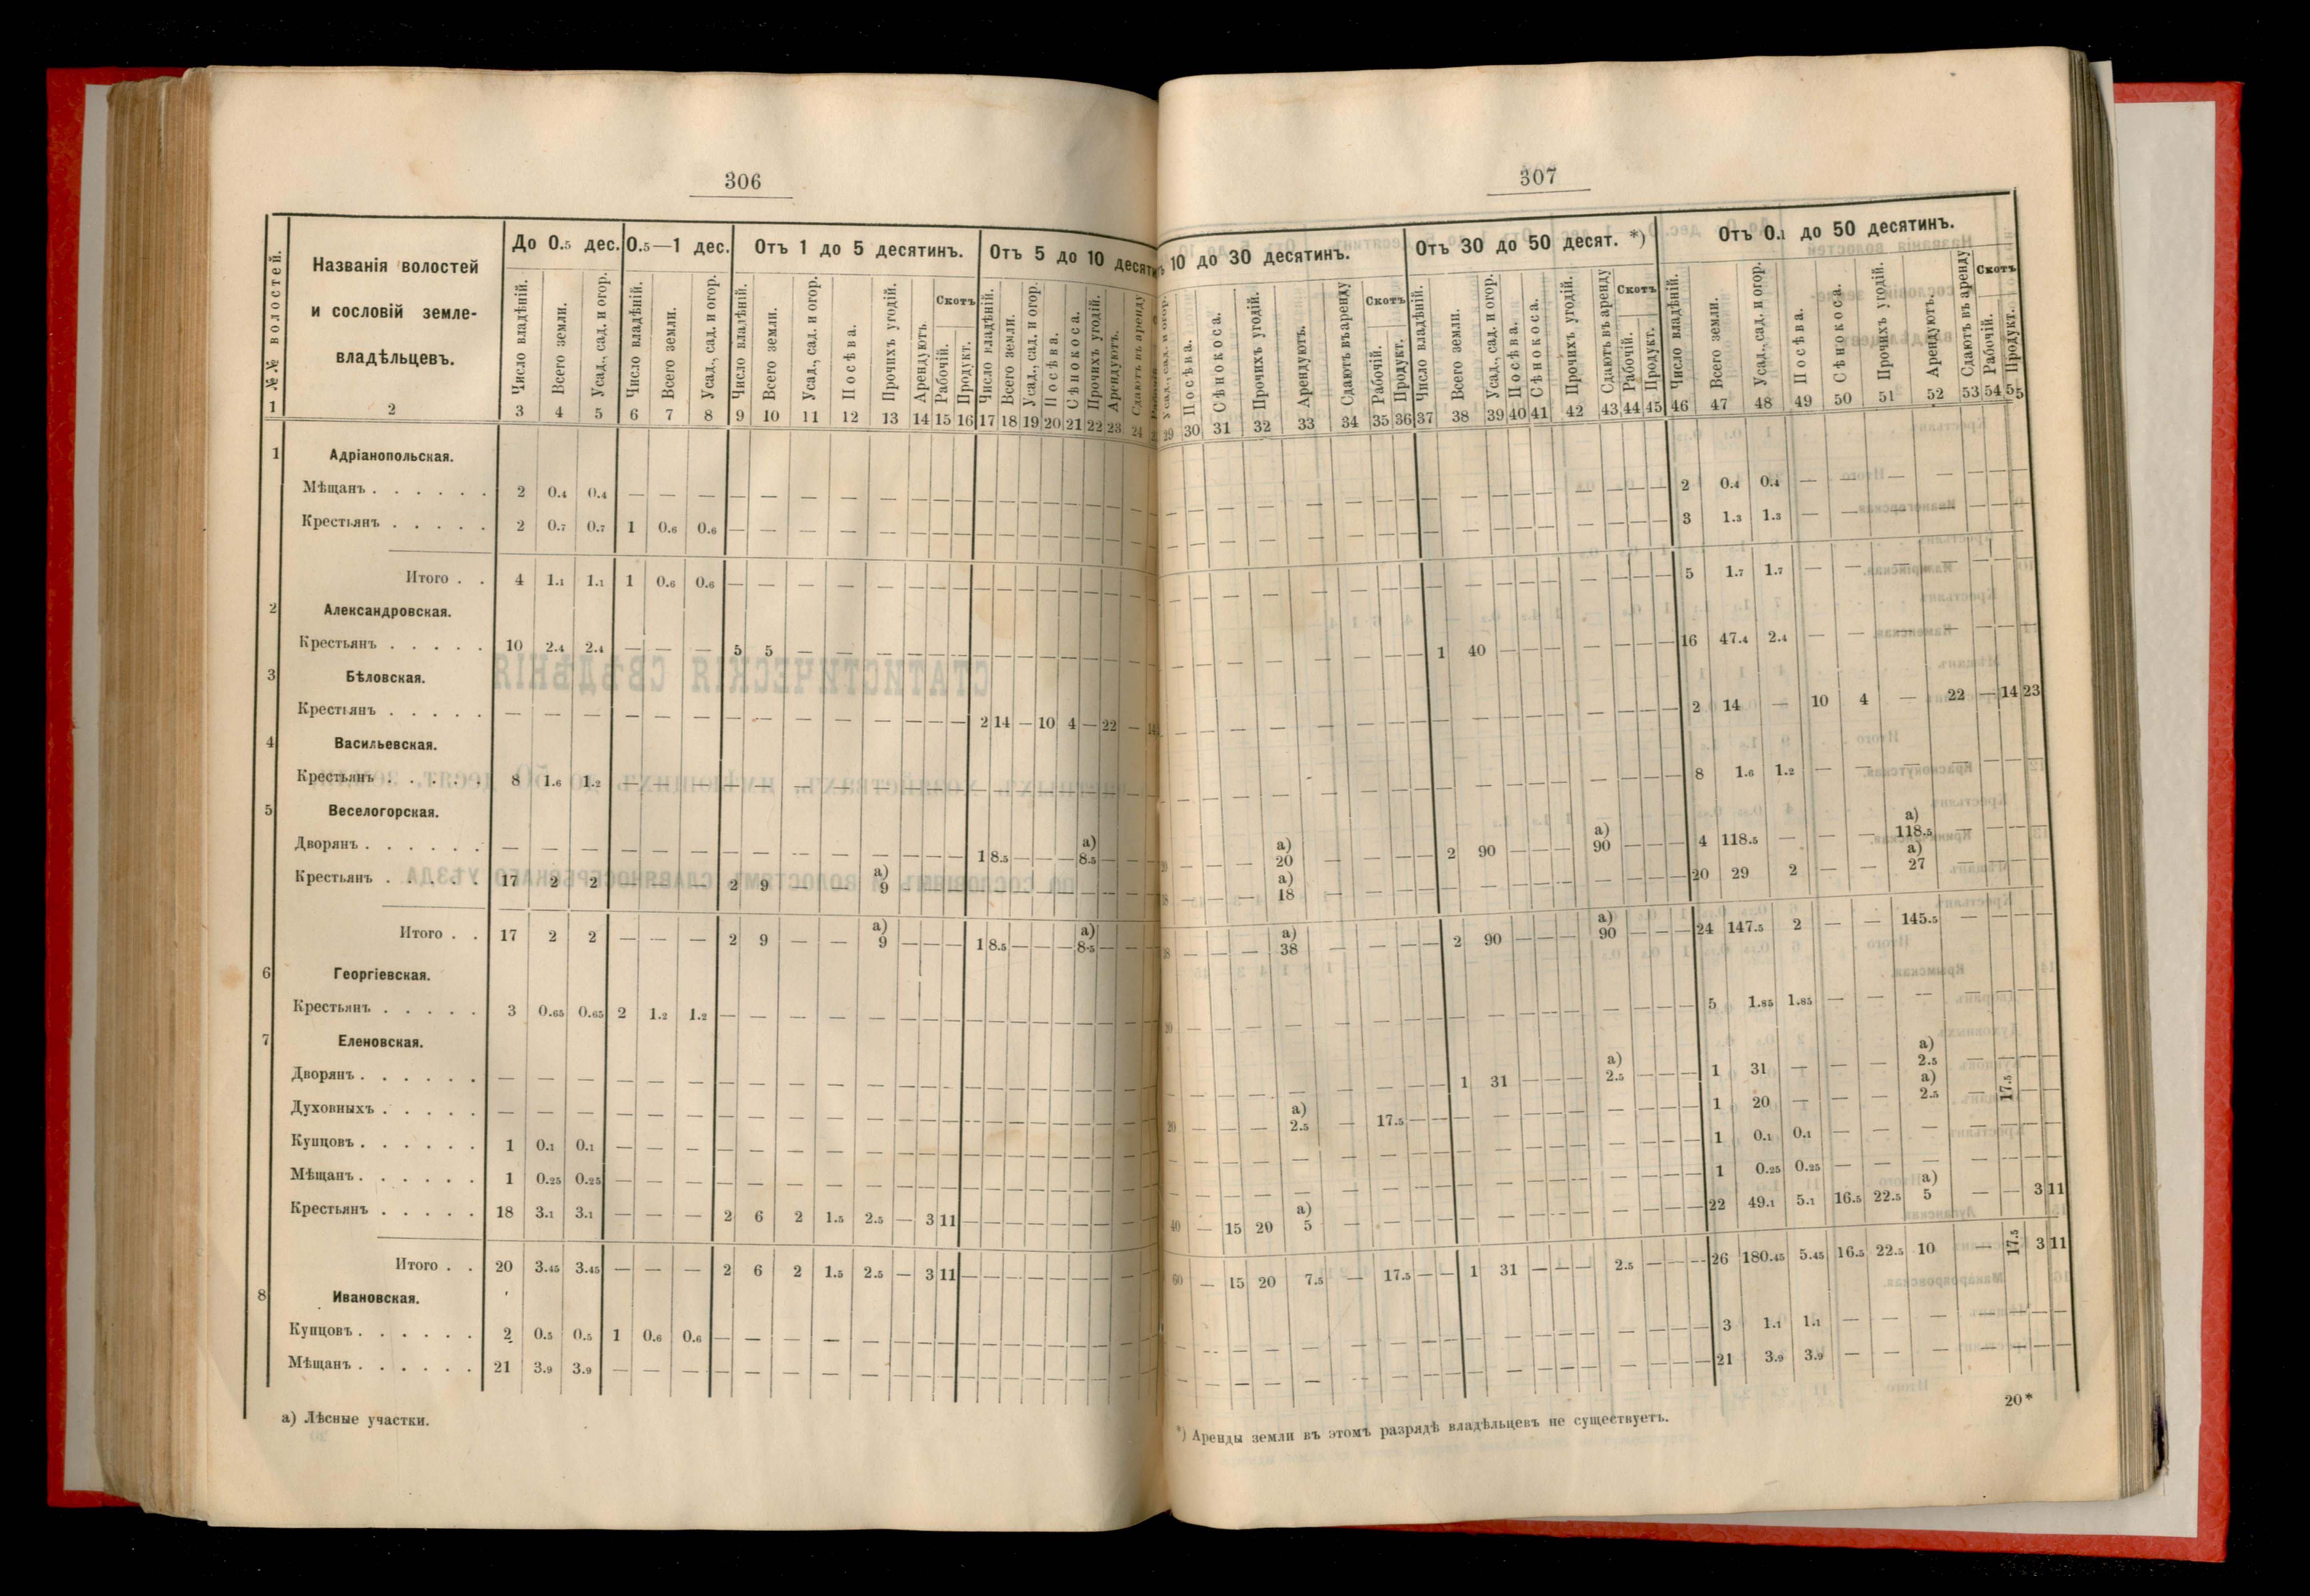 306
№№ волостей. | Названія волостей и сословій земле-владѣльцевъ. | До 0.5 дес. | 0.5—1 дес. | Отъ 1 до 5 десятинъ. | Отъ 5 до 10 десяти
Число владѣній. | Всего земли. | Усад., сад. и огор. | Число владѣній. | Всего земли. | Усад., сад. и огор. | Число владѣній. | Всего земли. | Усад., сад. и огор. | Посѣва. | Прочихъ угодій. | Арендуютъ. | Скотъ | Рабочій. | Продукт. | Число владѣній. | Всего земли. | Усад., сад. и огор. | Посѣва. | Сѣнокоса. | Прочихъ угодій. | Арендуютъ. | Сдаютъ въ аренду
1 2 3 4 5 6 7 8 9 10 11 12 13 14 15 16 17 18 19 20 21 22 23 24
1 Адріанопольская.
Мѣщанъ . . . . . . 2 0.4 0.4 — — — — — — — — — — — — — — — — — — —
Крестьянъ . . . . . 2 0.7 0.7 1 0.6 0.6 — — — — — — — — — — — — — — — —
Итого . . 4 1.1 1.1 1 0.6 0.6 — — — — — — — — — — — — — — — —
2 Александровская.
Крестьянъ . . . . . 10 2.4 2.4 — — — 5 5 — — — — — — — — — — — — — —
3 Бѣловская.
Крестьянъ . . . . . — — — — — — — — — — — — — — 2 14 — 10 4 — 22 —
4 Васильевская.
Крестьянъ . . . . . 8 1.6 1.2 — — — — — — — — — — — — — — — — — — —
5 Веселогорская.
Дворянъ . . . . . . — — — — — — — — — — — — — — 1 8.5 — — — а) 8.5 — —
Крестьянъ . . . . . 17 2 2 — — — 2 9 — — а) 9 — — — — — — — — — — —
Итого . . 17 2 2 — — — 2 9 — — а) 9 — — — 1 8.5 — — — а) 8.5 — —
6 Георгіевская.
Крестьянъ . . . . . 3 0.65 0.65 2 1.2 1.2 — — — — — — — — — — — — — — — —
7 Еленовская.
Дворянъ . . . . . . — — — — — — — — — — — — — — — — — — — — — —
Духовныхъ . . . . . — — — — — — — — — — — — — — — — — — — — — —
Купцовъ . . . . . . 1 0.1 0.1 — — — — — — — — — — — — — — — — — — —
Мѣщанъ . . . . . . 1 0.25 0.25 — — — — — — — — — — — — — — — — — — —
Крестьянъ . . . . . 18 3.1 3.1 — — — 2 6 2 1.5 2.5 — 3 11 — — — — — — — —
Итого . . 20 3.45 3.45 — — — 2 6 2 1.5 2.5 — 3 11 — — — — — — — —
8 Ивановская.
Купцовъ . . . . . . 2 0.5 0.5 1 0.6 0.6 — — — — — — — — — — — — — — — —
Мѣщанъ . . . . . . 21 3.9 3.9 — — — — — — — — — — — — — — — — — — —
а) Лѣсные участки.
307
10 до 30 десятинъ. | Отъ 30 до 50 десят. *) | Отъ 0.1 до 50 десятинъ.
Усад., сад. и огор. | Посѣва. | Сѣнокоса. | Прочихъ угодій. | Арендуютъ. | Сдаютъ въ аренду | Скотъ | Рабочій. | Продукт. | Число владѣній. | Всего земли. | Усад., сад. и огор. | Посѣва. | Сѣнокоса. | Прочихъ угодій. | Сдаютъ въ аренду | Скотъ | Рабочій. | Продукт. | Число владѣній. | Всего земли. | Усад., сад. и огор. | Посѣва. | Сѣнокоса. | Прочихъ угодій. | Арендуютъ. | Сдаютъ въ аренду | Скотъ | Рабочій. | Продукт.
29 30 31 32 33 34 35 36 37 38 39 40 41 42 43 44 45 46 47 48 49 50 51 52 53 54 55
— — — — — — — — — — — — — 2 0.4 0.4 — — — — — — —
— — — — — — — — — — — — — 3 1.3 1.3 — — — — — — —
— — — — — — — — — — — — — 5 1.7 1.7 — — — — — — —
— — — — — — — — 1 40 — — — — — — — 16 47.4 2.4 — — — — — — —
— — — — — — — — — — — — — 2 14 — 10 4 — 22 — 14 23
— — — — — — — — — — — — — 8 1.6 1.2 — — — — — — —
— — — а) 20 — — — — 2 90 — — — а) 90 — — — 4 118.5 — — — а) 118.5 — — — —
— — — а) 18 — — — — — — — — — — — — — 20 29 2 — — а) 27 — — — —
— — — а) 38 — — — — 2 90 — — — а) 90 — — — 24 147.5 2 — — 145.5 — — — —
— — — — — — — — — — — — — 5 1.85 1.85 — — — — — — —
— — — — — — — — 1 31 — — — а) 2.5 — — — 1 31 — — — а) 2.5 — — — —
20 — — — а) 2.5 — 17.5 — — — — — — — — — — — 1 20 — — — а) 2.5 — 17.5 — —
— — — — — — — — — — — — — 1 0.1 0.1 — — — — — — —
— — — — — — — — — — — — — 1 0.25 0.25 — — — — — — —
40 — 15 20 а) 5 — — — — — — — — — — — — — 22 49.1 5.1 16.5 22.5 а) 5 — — 3 11
60 — 15 20 7.5 — 17.5 — — 1 31 — — — 2.5 — — — 26 180.45 5.45 16.5 22.5 10 — 17.5 3 11
— — — — — — — — — — — — — 3 1.1 1.1 — — — — — — —
— — — — — — — — — — — — — 21 3.9 3.9 — — — — — — —
*) Аренды земли въ этомъ разрядѣ владѣльцевъ не существуетъ.
20*